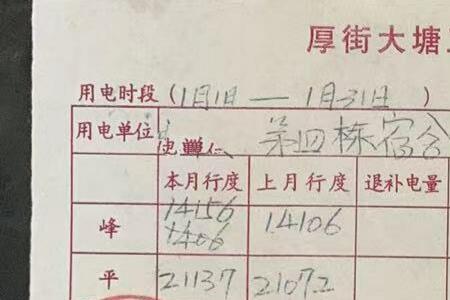 厚街大塘
用电时段（1月1日 — 1月31日）
用电单位 第四栋宿舍
本月行度 上月行度 退补电量
14156
峰 1406 14106
平 21137 21072